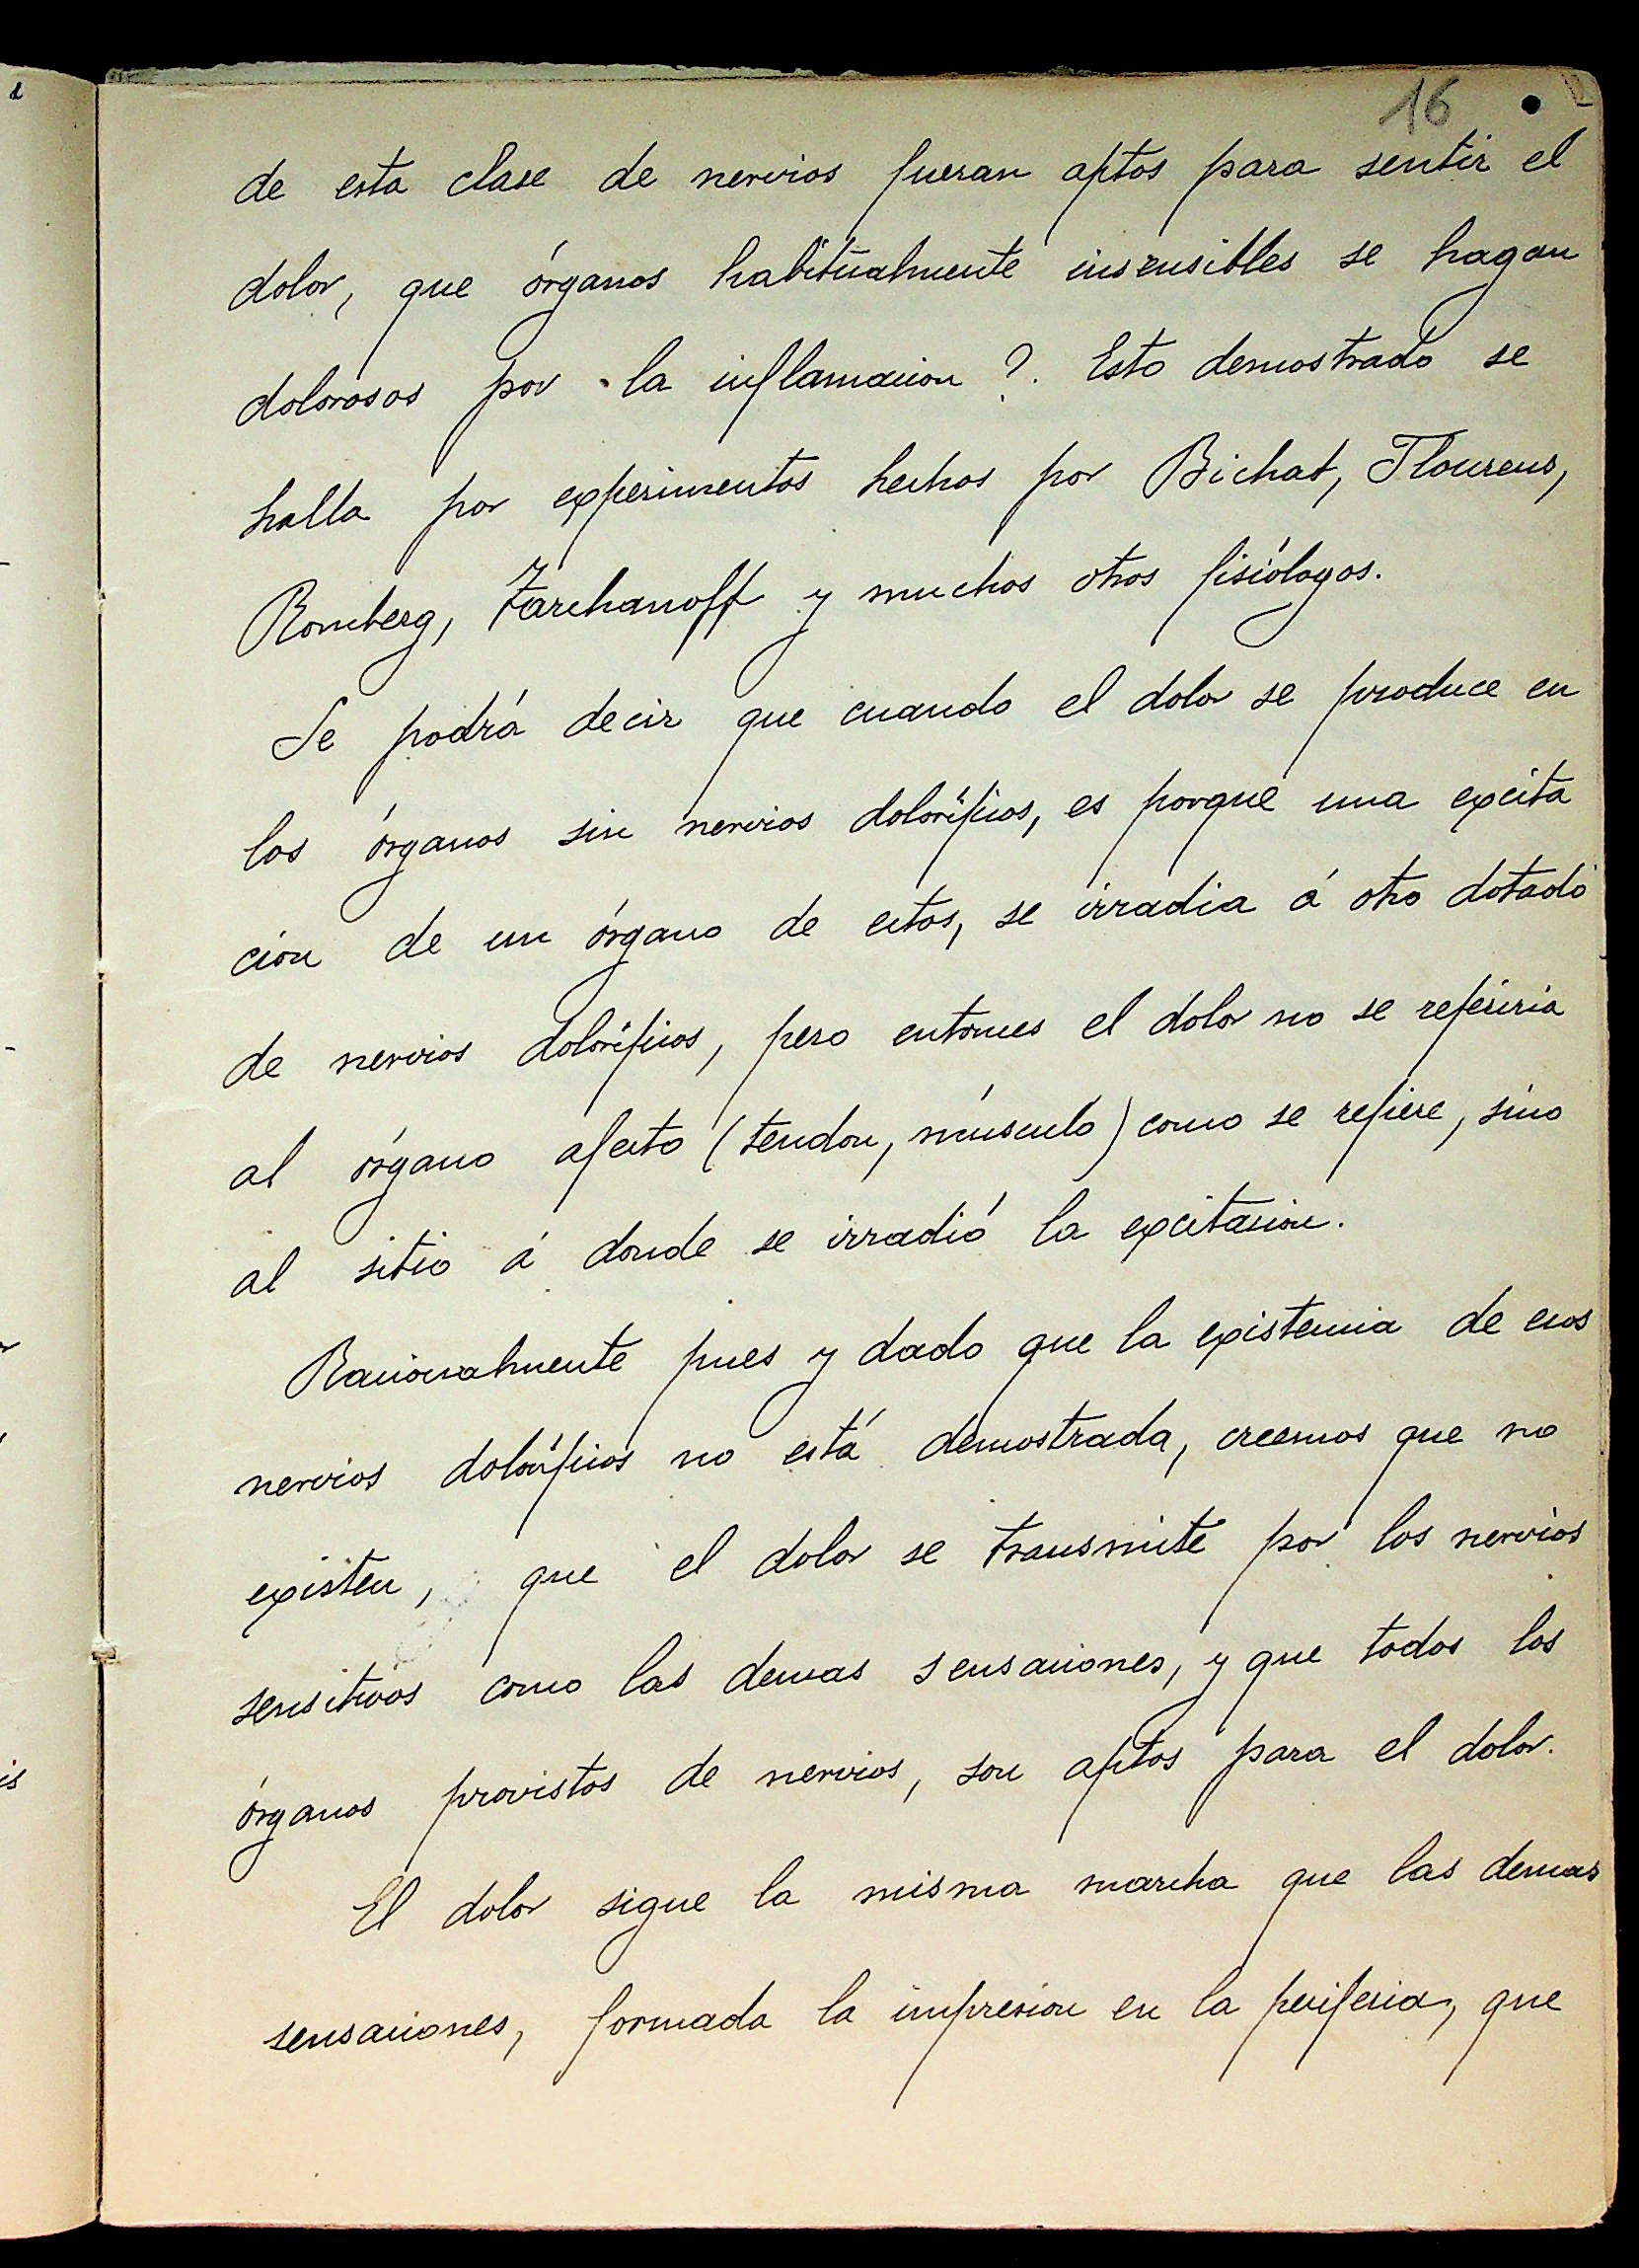 16
de esta clase de nervios fueran aptos para sentir el
dolor, que órganos habitualmente insensibles se hagan
dolorosos por la inflamacion ?. Esto demostrado se
halla por experimentos hechos por Bichat, Flourens,
Romberg, Tarchanoff y muchos otros fisiólogos.
Se podrá decir que cuando el dolor se produce en
los órganos sin nervios doloríficos, es porque una excita
cion de un órgano de estos, se irradia á otro dotado
de nervios doloríficos, pero entonces el dolor no se referiria
al órgano afecto (tendon, músculo) como se refiere, sino
al sitio á donde se irradió la excitacion.
Racionalmente pues y dado que la existencia de esos
nervios doloríficos no está demostrada, creemos que no
existen, que el dolor se transmite por los nervios
sensitivos como las demas sensaciones, y que todos los
órganos provistos de nervios, son aptos para el dolor.
El dolor sigue la misma marcha que las demas
sensaciones, formada la impresion en la periferia, que